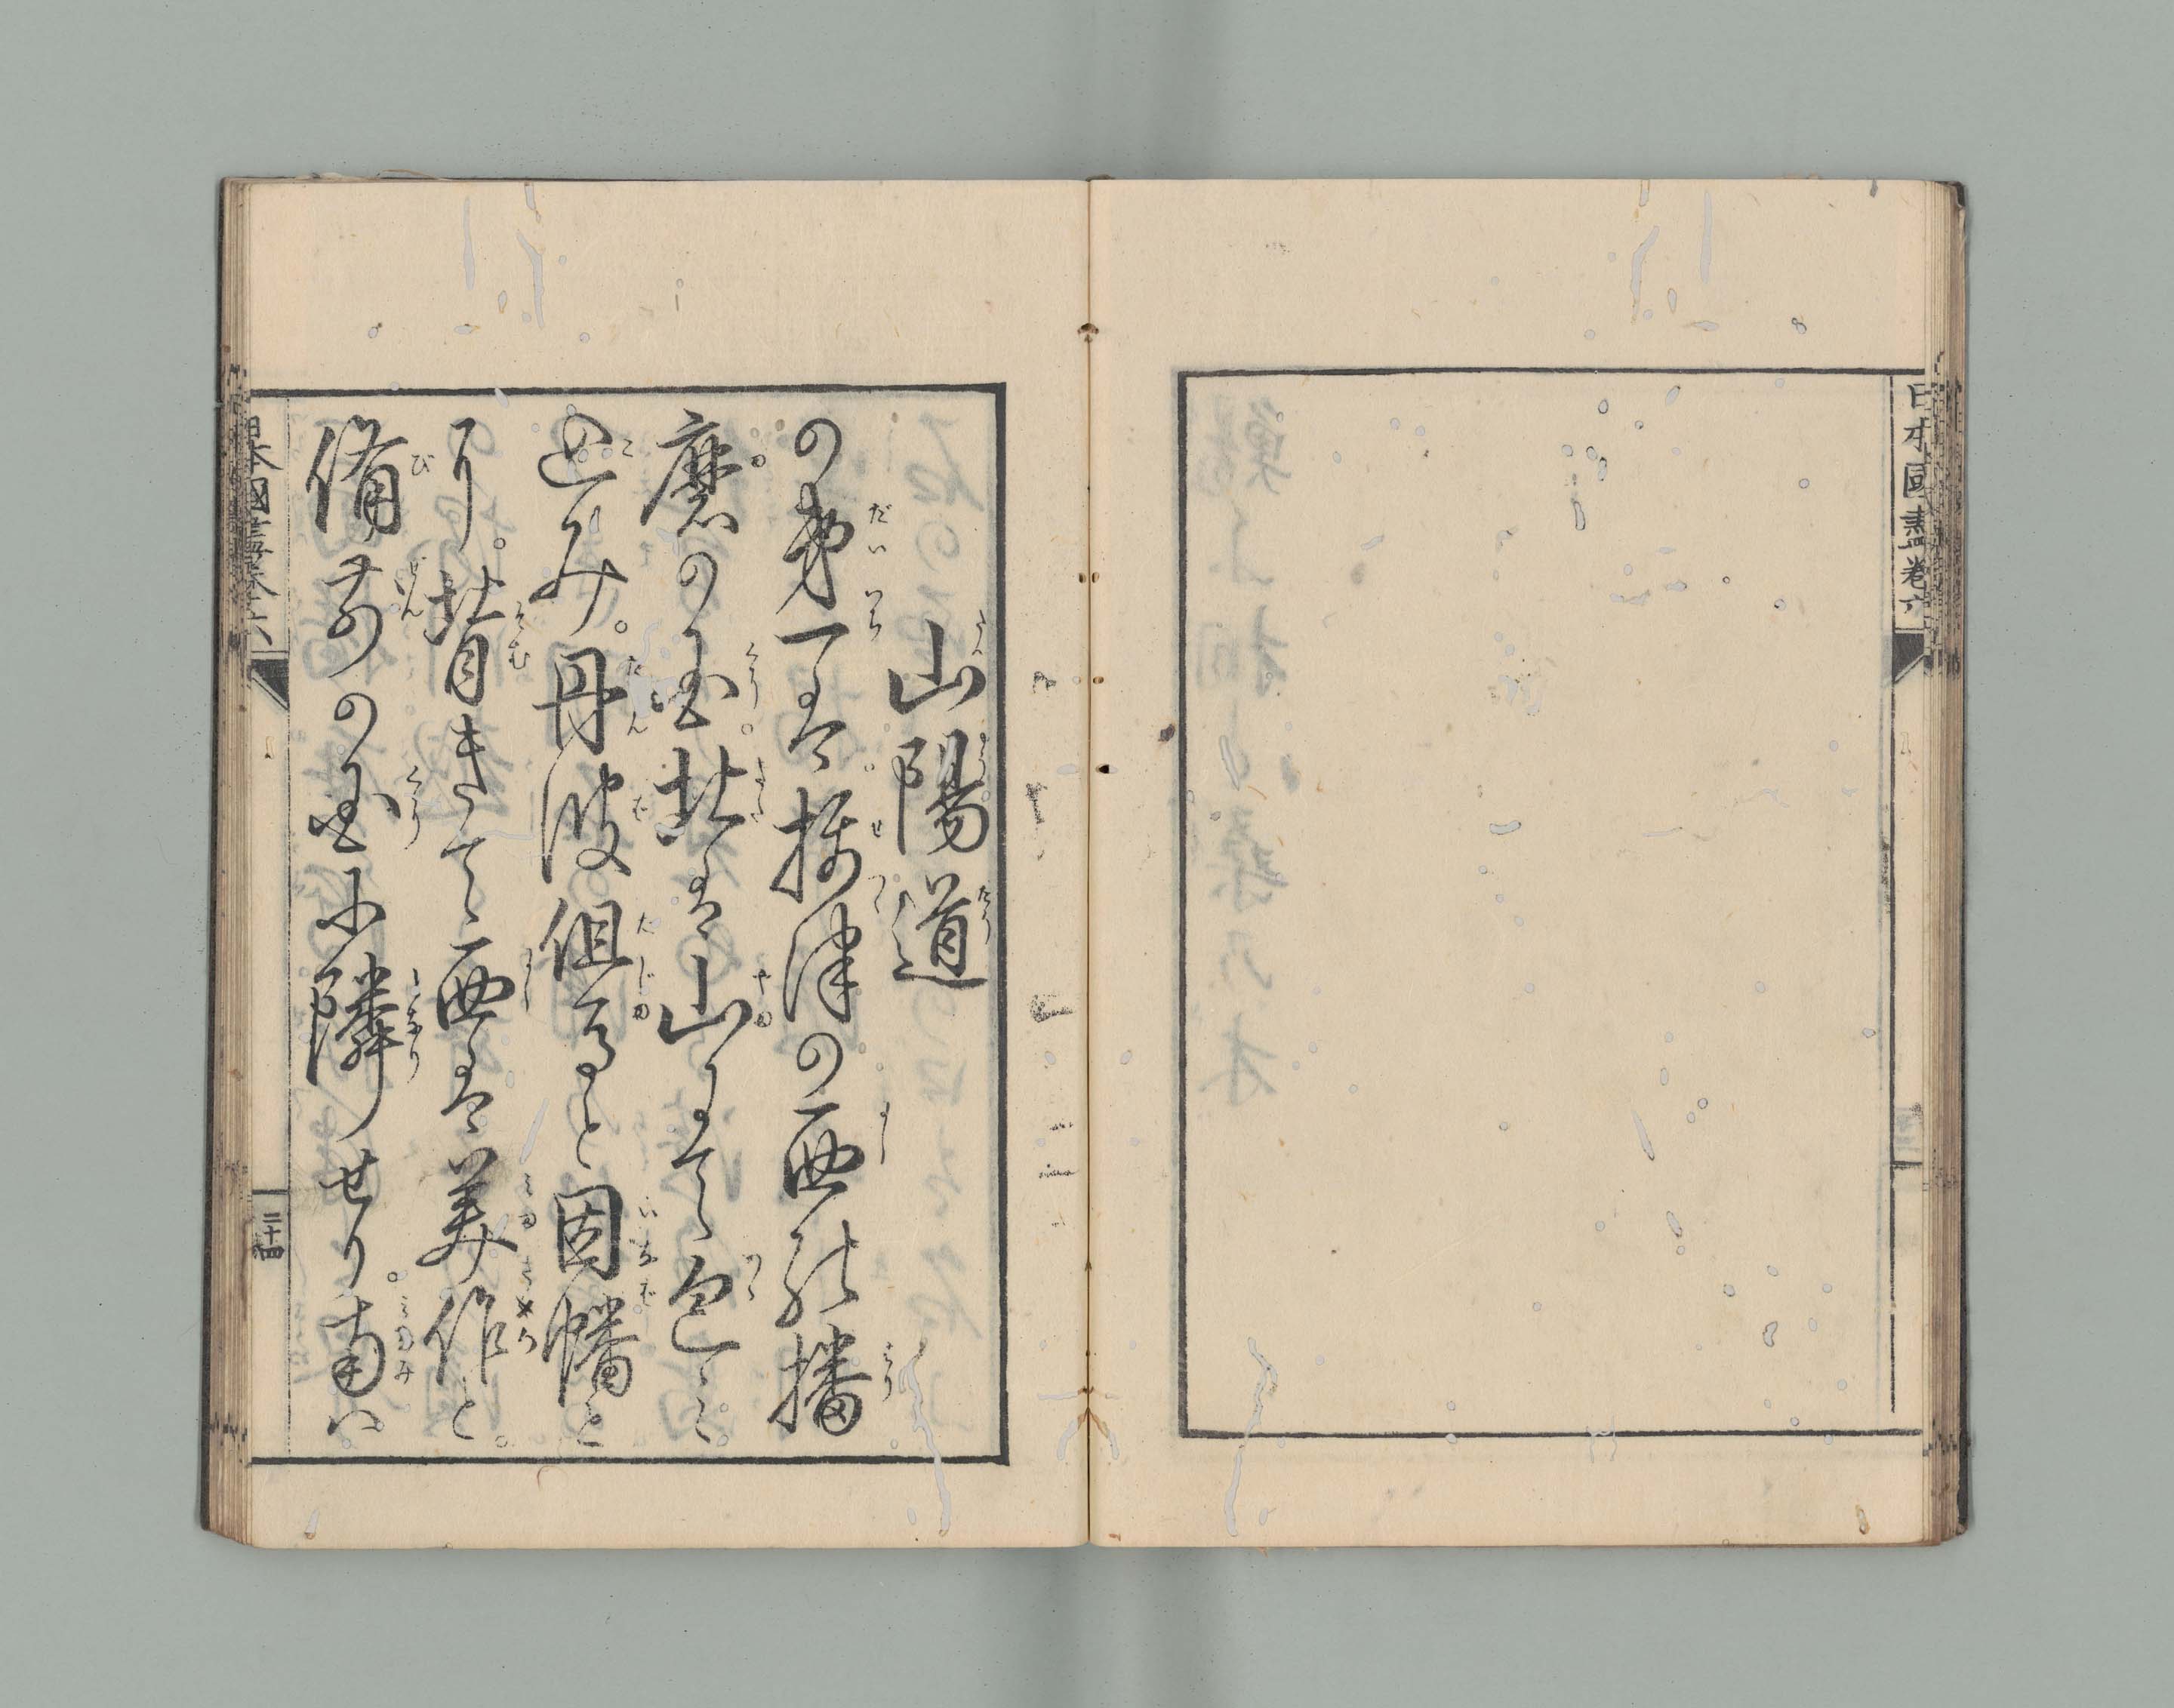 日本國盡卷六
山陽道
の第一番は。摂津の西能播
磨の国。北は山にて包ミ
込み。丹波但馬と因幡と
り。背きて西は美作と。
備前の国に隣せり。南ハ
日本國盡卷六
三十四